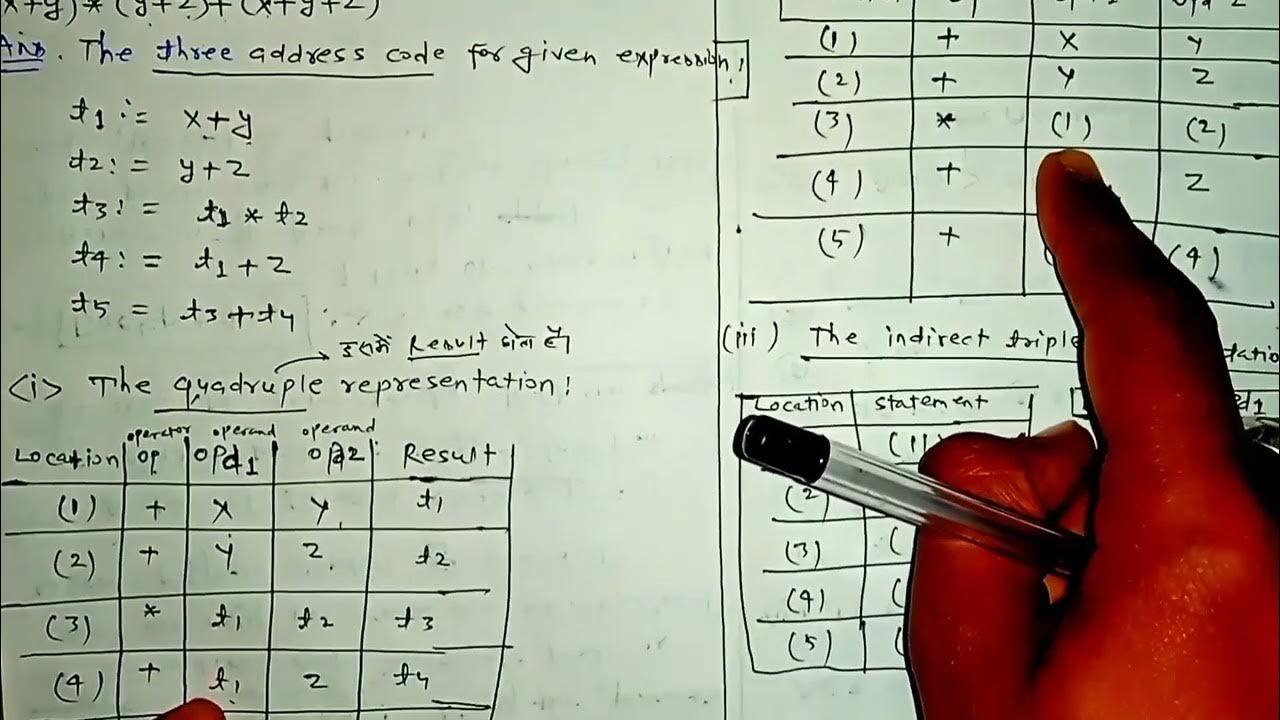 x+y)*(y+z)+(x+y+z)
Ans. The three address code for given expression:
t1 := x+y
t2 := y+z
t3 := t1 * t2
t4 := t1 + z
t5 = t3+t4
इसमें Result होता है।
<i> The quadruple representation:
operator operand operand
Location op opd1 opd2 Result
(1) + x y t1
(2) + y z t2
(3) * t1 t2 t3
(4) + t1 z t4
(1) + x y
(2) + y z
(3) * (1) (2)
(4) + z
(5) + (4)
(iii) The indirect triple
Location statement
(1)
(2)
(3) (
(4) (
(5) (